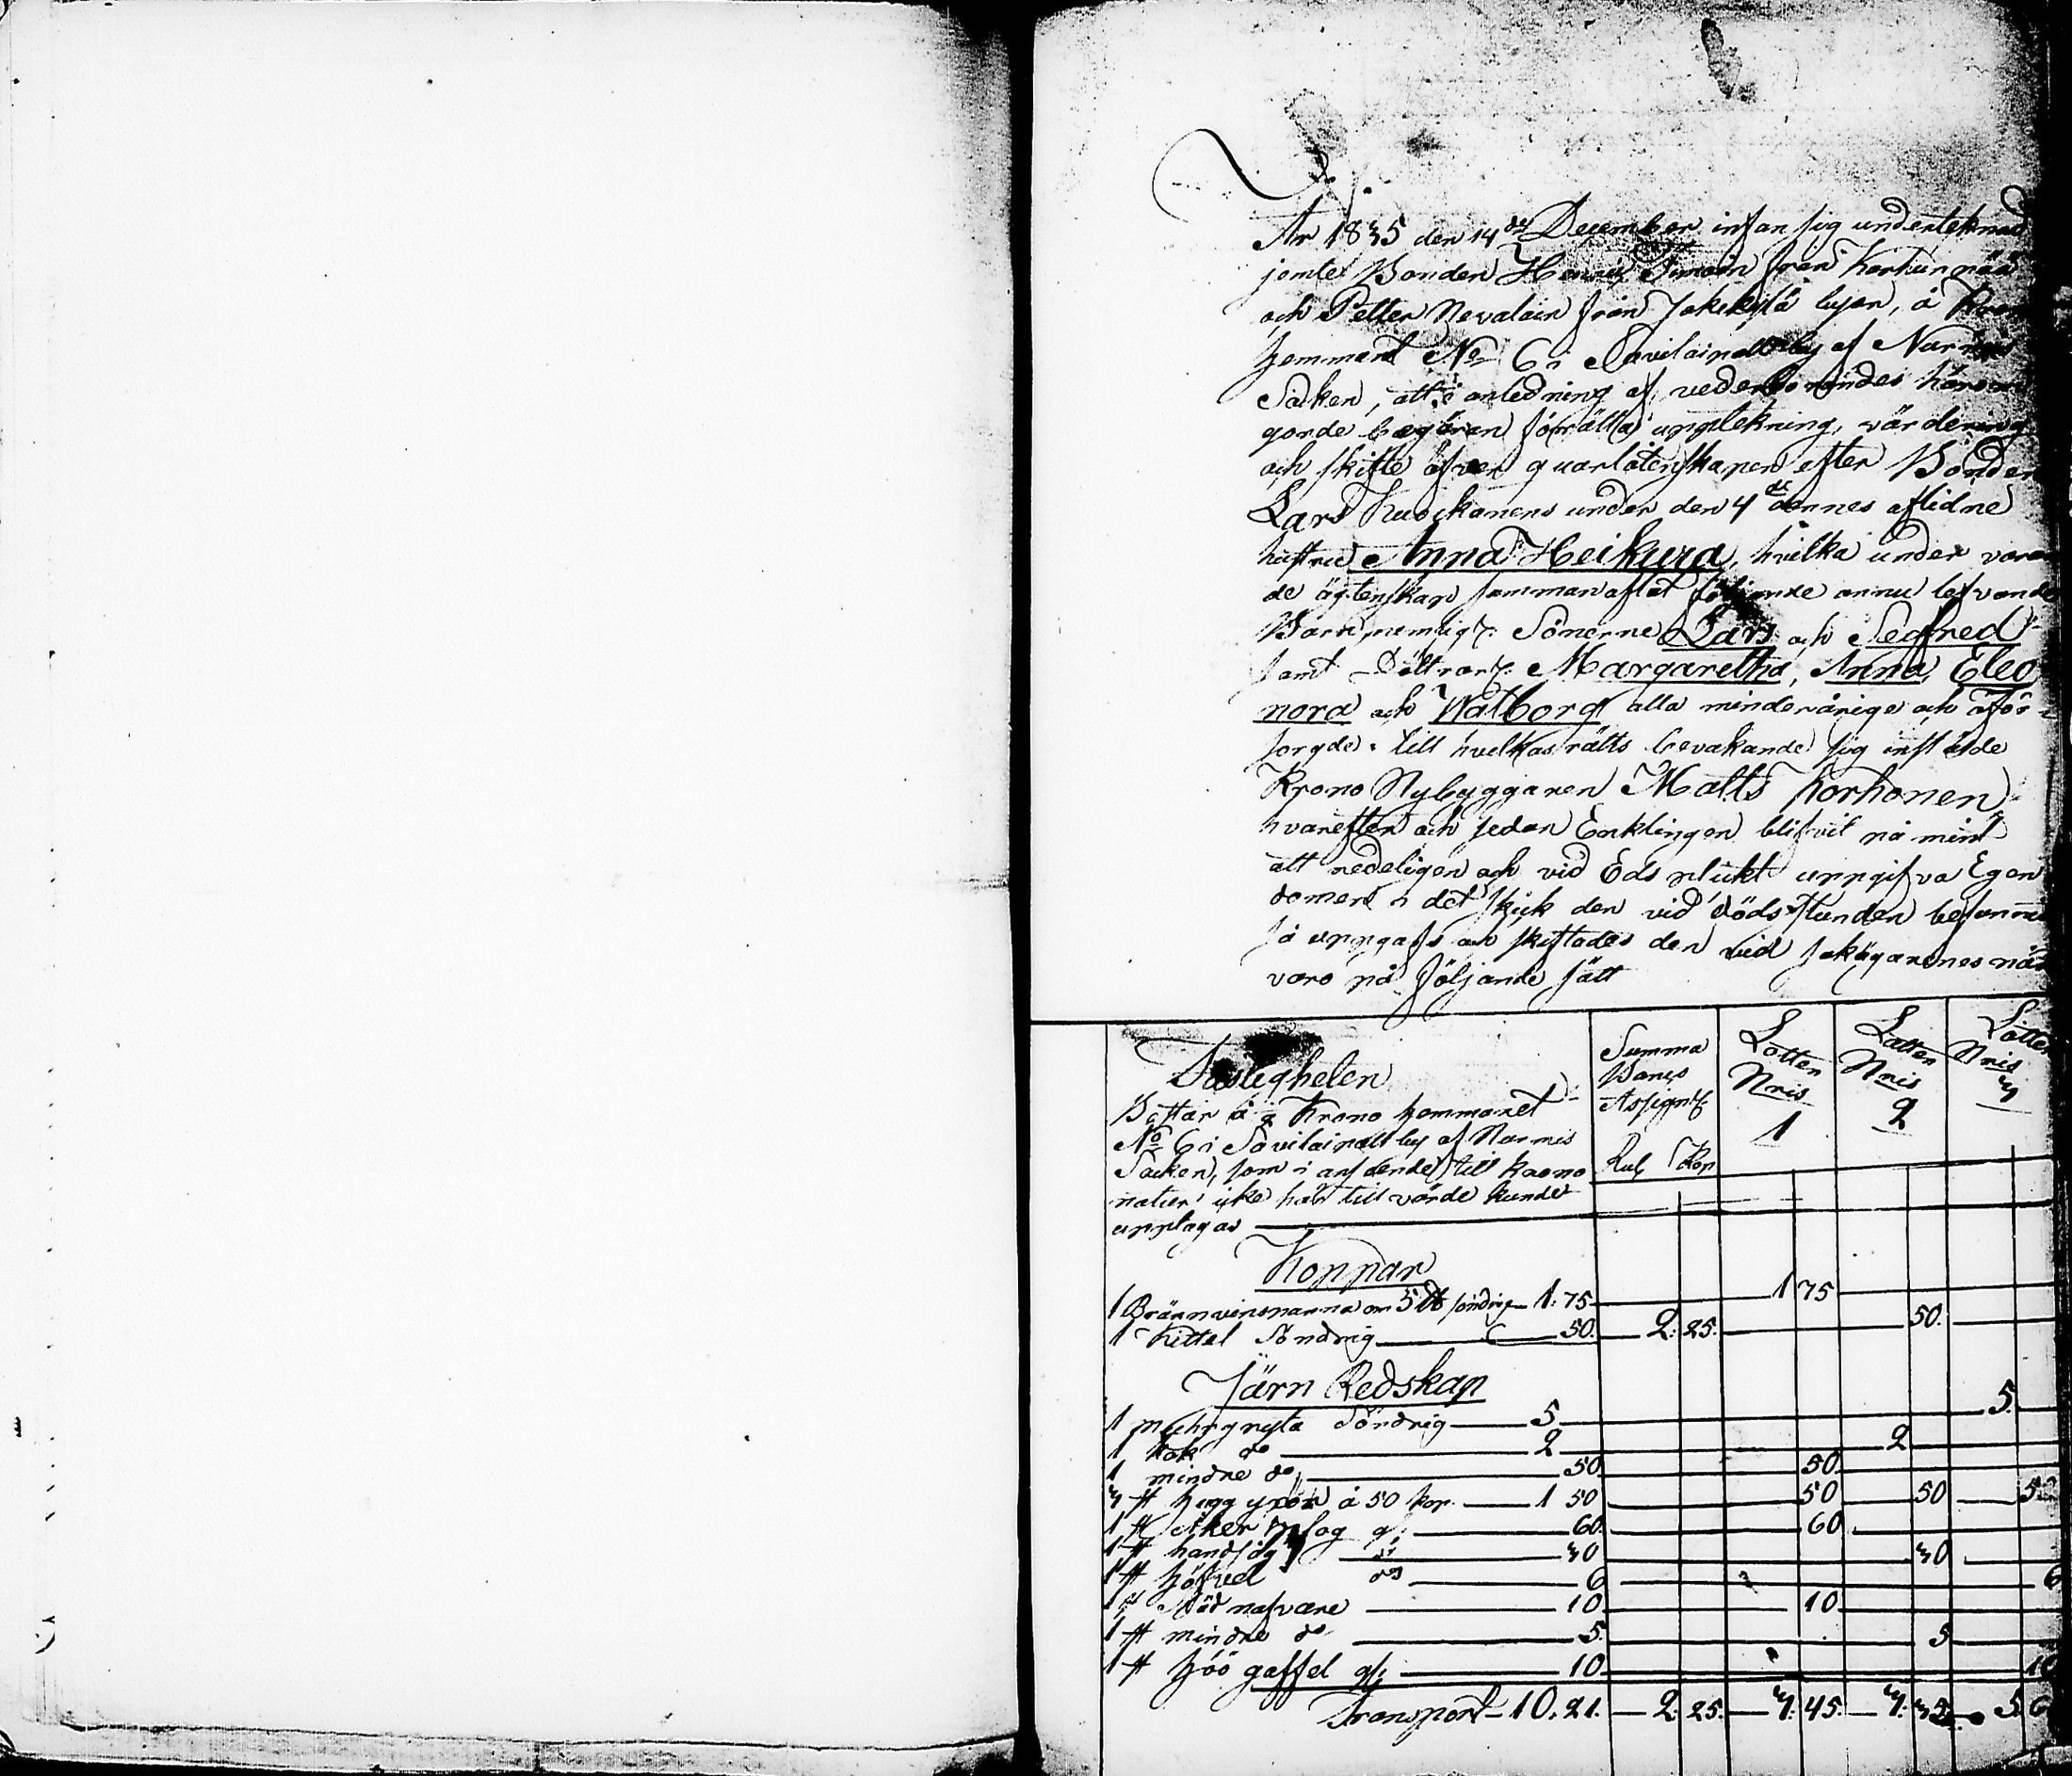 År 1835 den 14de December infan sig underteknad
jemte Bonden Henric Timoin från Korhunpää
och Petter Nevalain från Jokikylä byar, å Krono
hemmant No 6 i Savilainatt by af Nurmis
Socken, att i anledning af vederborandes härom
gorde begäran förrätta upptekning, värdering
och skifte öfver quarlåtenskapen efter Bonden
Lars Kuockanens under den 4de dennes aflidne
hustru Anna Heikura, hvilka under varan
de ägtenskap sammanaflat följande annu lefvande
Barn nemligt: Sönerne Lars och Segfred
samt Döttrar: Margaretha, Anna, Eleo
nora och Walborg alla minderårige och oför=
sorgde: till hvilkas rätts bevakande sig instälde
Krono Nybyggaren Matts Korhonen,
hvarefter och sedan Enklingen blifvit påmint
att redeligen och vid Eds plickt uppgifva Egen
domen i det skick den vid dödsstunden befunnits
så uppgafs och skiftades den vid sakägarenes när
varo på följande sätt
Fastigheten
Består å Krono hemmanet
No 6 i Savilainatt by af Nurmis
Socken, som i anseende till krono
natur icke har till värde kunde
upptagas
Summa Banco Assignt. Rub Kop
Lotten Nris 1
Lotten Nris 2
Lotten Nris 3
Koppar
1 Brännvinspanna om 5 söndrig 1:75 1 75
1 Kittel Söndrig 50. 2:25. 50.
Järn Redskap
1 gryta Söndrig 5 5.
1 kok do 2 2
1 mindre do 50 50
3 st à 50 kop. 1 50 50 50 5
1 st Åker plog g: 60. 60.
1 st handsåg do 30 30
1 st do 6 6
1 st nafvare 10 10
1 st mindre do 5. 5
1 st höö gaffel 10 10
Transport 10.21. 2:25. 3:45. 3:35. 5 6